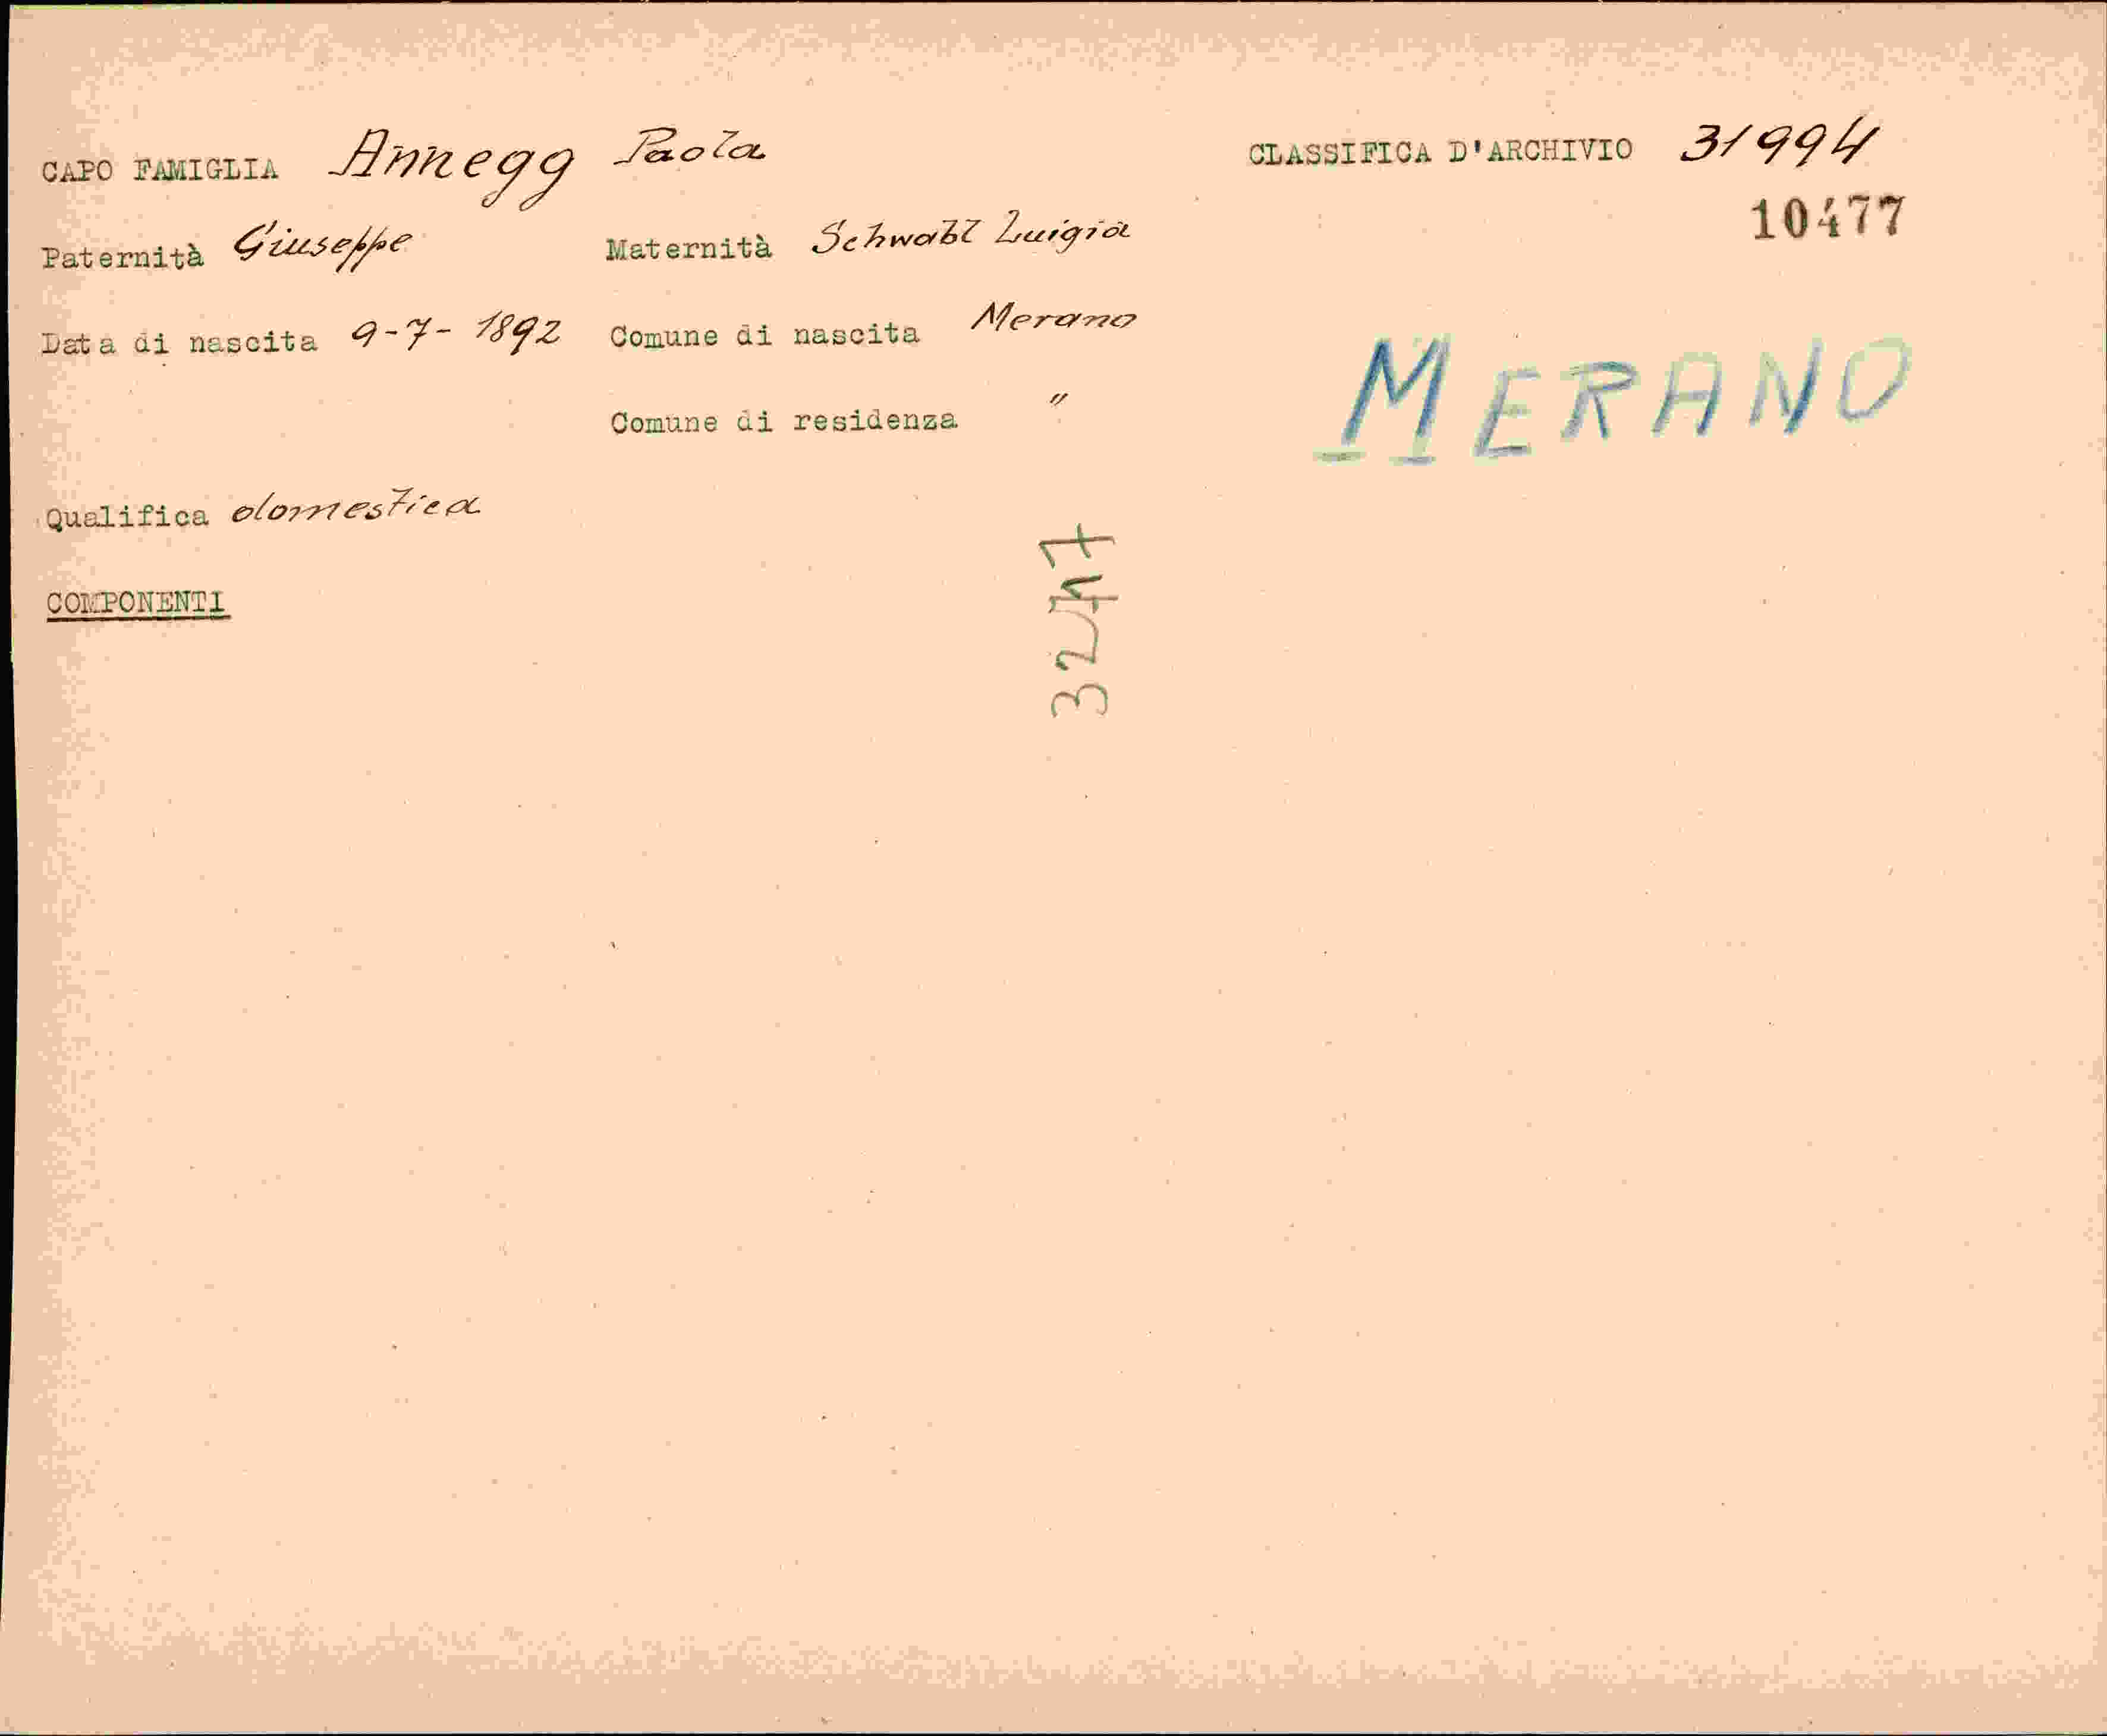 CAPO FAMIGLIA Annegg Paola CLASSIFICA D'ARCHIVIO 31994
10477
Paternità Giuseppe Maternità Schwabl Luigia
Data di nascita 9-7-1892 Comune di nascita Merano
MERANO
Comune di residenza "
Qualifica domestica
COMPONENTI